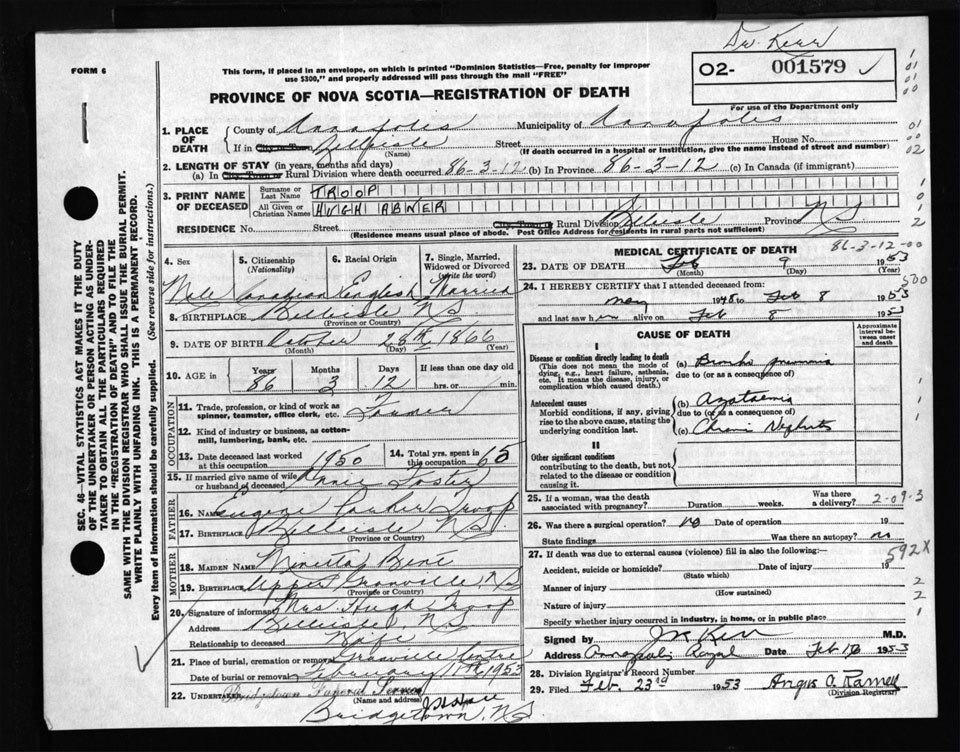 Dr. Kerr
FORM 6
This form, if placed in an envelope, on which is printed "Dominion Statistics—Free, penalty for improper
use $300," and properly addressed will pass through the mail "FREE"
02- 001579 ✓
PROVINCE OF NOVA SCOTIA—REGISTRATION OF DEATH
For use of the Department only
1. PLACE OF DEATH { County of Annapolis Municipality of Annapolis
If in City or Town Belleisle (Name) Street House No.
(If death occurred in a hospital or institution, give the name instead of street and number)
2. LENGTH OF STAY (in years, months and days)
(a) In City, Town or Rural Division where death occurred 86-3-12 (b) In Province 86-3-12 (c) In Canada (if immigrant)
3. PRINT NAME OF DECEASED { Surname or Last Name TROOP
All Given or Christian Names HUGH ABNER
RESIDENCE No. Street City, Town or Rural Division Belleisle Province NS
(Residence means usual place of abode. Post Office Address for residents in rural parts not sufficient)
4. Sex 5. Citizenship (Nationality) 6. Racial Origin 7. Single, Married, Widowed or Divorced (write the word)
Male Canadian English Married
8. BIRTHPLACE Belleisle NS
(Province or Country)
9. DATE OF BIRTH October 28th 1866
(Month) (Day) (Year)
10. AGE in { Years Months Days If less than one day old
86 3 12 hrs. or min.
OCCUPATION
11. Trade, profession, or kind of work as spinner, teamster, office clerk, etc. Farmer
12. Kind of industry or business, as cotton-mill, lumbering, bank, etc.
13. Date deceased last worked at this occupation 1950 14. Total yrs. spent in this occupation 65
15. If married give name of wife or husband of deceased Annie Foster
FATHER
16. NAME Eugene Parker Troop
17. BIRTHPLACE Belleisle N.S.
(Province or Country)
MOTHER
18. MAIDEN NAME Bent
19. BIRTHPLACE Upper Granville, NS
(Province or Country)
20. Signature of informant Mrs Hugh Troop
Address Belleisle, NS
Relationship to deceased Wife
21. Place of burial, cremation or removal Granville Centre
Date of burial or removal February 11th 1953
22. UNDERTAKER Bridgetown Funeral Service
(Name and address)
Bridgetown, N.S.
MEDICAL CERTIFICATE OF DEATH 86-3-12-00
23. DATE OF DEATH Feb 9 1953
(Month) (Day) (Year)
24. I HEREBY CERTIFY that I attended deceased from:
May 1948 to Feb 8 1953
and last saw him alive on Feb 8 1953
CAUSE OF DEATH
Approximate interval between onset and death
I
Disease or condition directly leading to death (a) Broncho pneumonia
(This does not mean the mode of dying, e.g., heart failure, asthenia, etc. It means the disease, injury, or complication which caused death.)
due to (or as a consequence of)
Antecedent causes (b) Azotaemia
Morbid conditions, if any, giving rise to the above cause, stating the underlying condition last.
due to (or as a consequence of)
(c) Chronic Nephritis
II
Other significant conditions
contributing to the death, but not related to the disease or condition causing it.
25. If a woman, was the death associated with pregnancy? Duration weeks. Was there a delivery? 2-09-3
26. Was there a surgical operation? no Date of operation 19
State findings Was there an autopsy? no
592X
27. If death was due to external causes (violence) fill in also the following:
Accident, suicide or homicide? Date of injury 19
(State which)
Manner of injury
(How sustained)
Nature of injury
Specify whether injury occurred in industry, in home, or in public place
Signed by Kerr M.D.
Address Annapolis Royal Date Feb 1953
28. Division Registrar's Record Number
29. Filed Feb. 23rd 1953
(Division Registrar)
SEC. 46—VITAL STATISTICS ACT MAKES IT THE DUTY
OF THE UNDERTAKER OR PERSON ACTING AS UNDER-
TAKER TO OBTAIN ALL THE PARTICULARS REQUIRED
IN THE "REGISTRATION OF DEATH" AND TO FILE THE
SAME WITH THE DIVISION REGISTRAR WHO SHALL ISSUE THE BURIAL PERMIT.
WRITE PLAINLY WITH UNFADING INK. THIS IS A PERMANENT RECORD.
Every item of information should be carefully supplied. (See reverse side for instructions.)